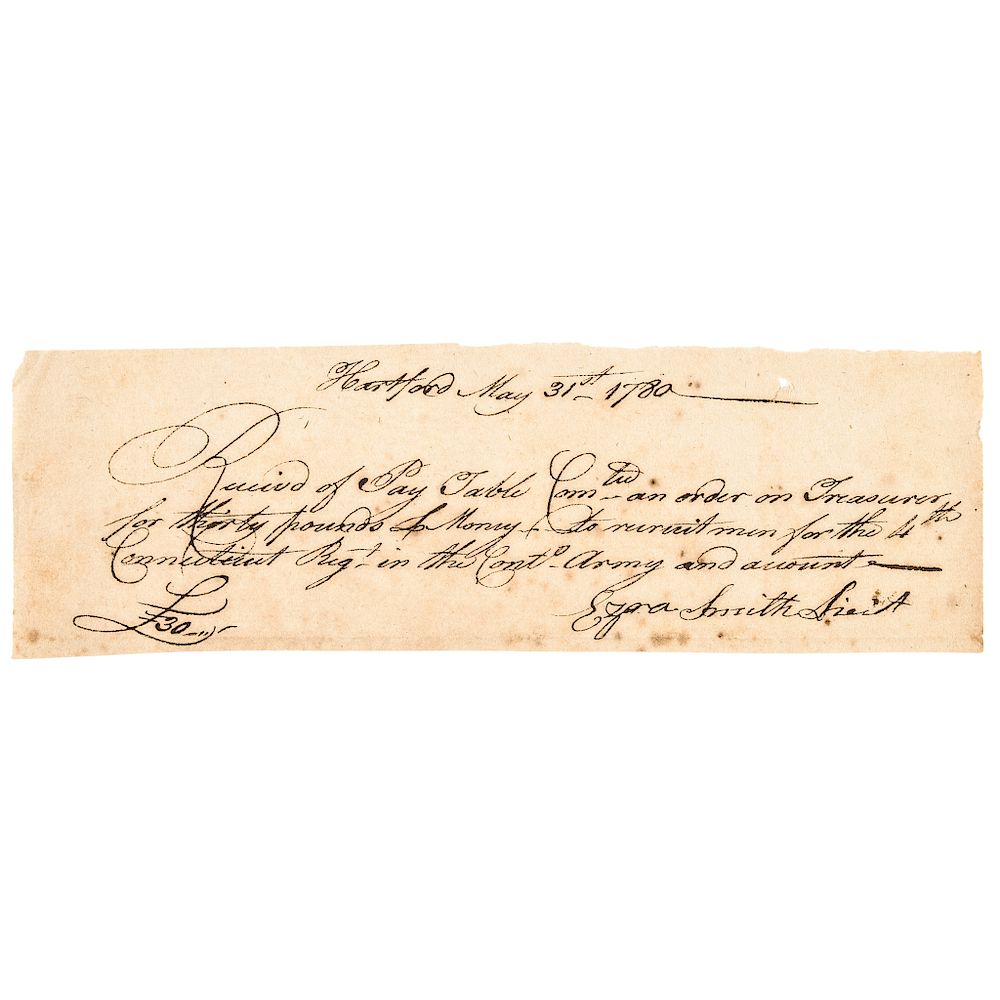 Hartford May 31st 1780
Receivd of Pay Table Comtee an order on Treasurer
for thirty pounds L Money to recruit men for the 4th
Connecticut Regt in the Contl Army and account
Ezra Smith Lieut
£30